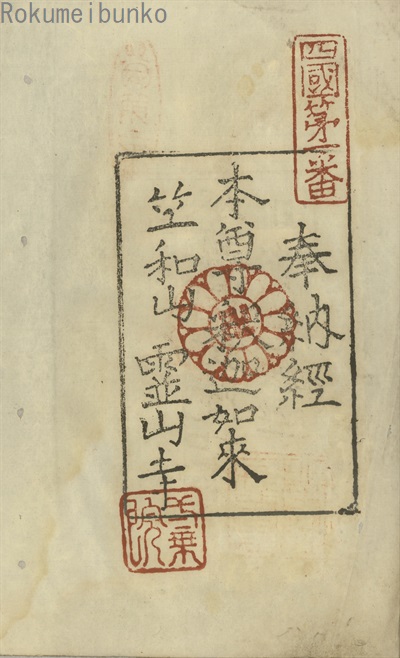 Rokumeibunko
四國第一番
奉納經
本尊釋迦如來
竺和山 霊山寺
一乗院